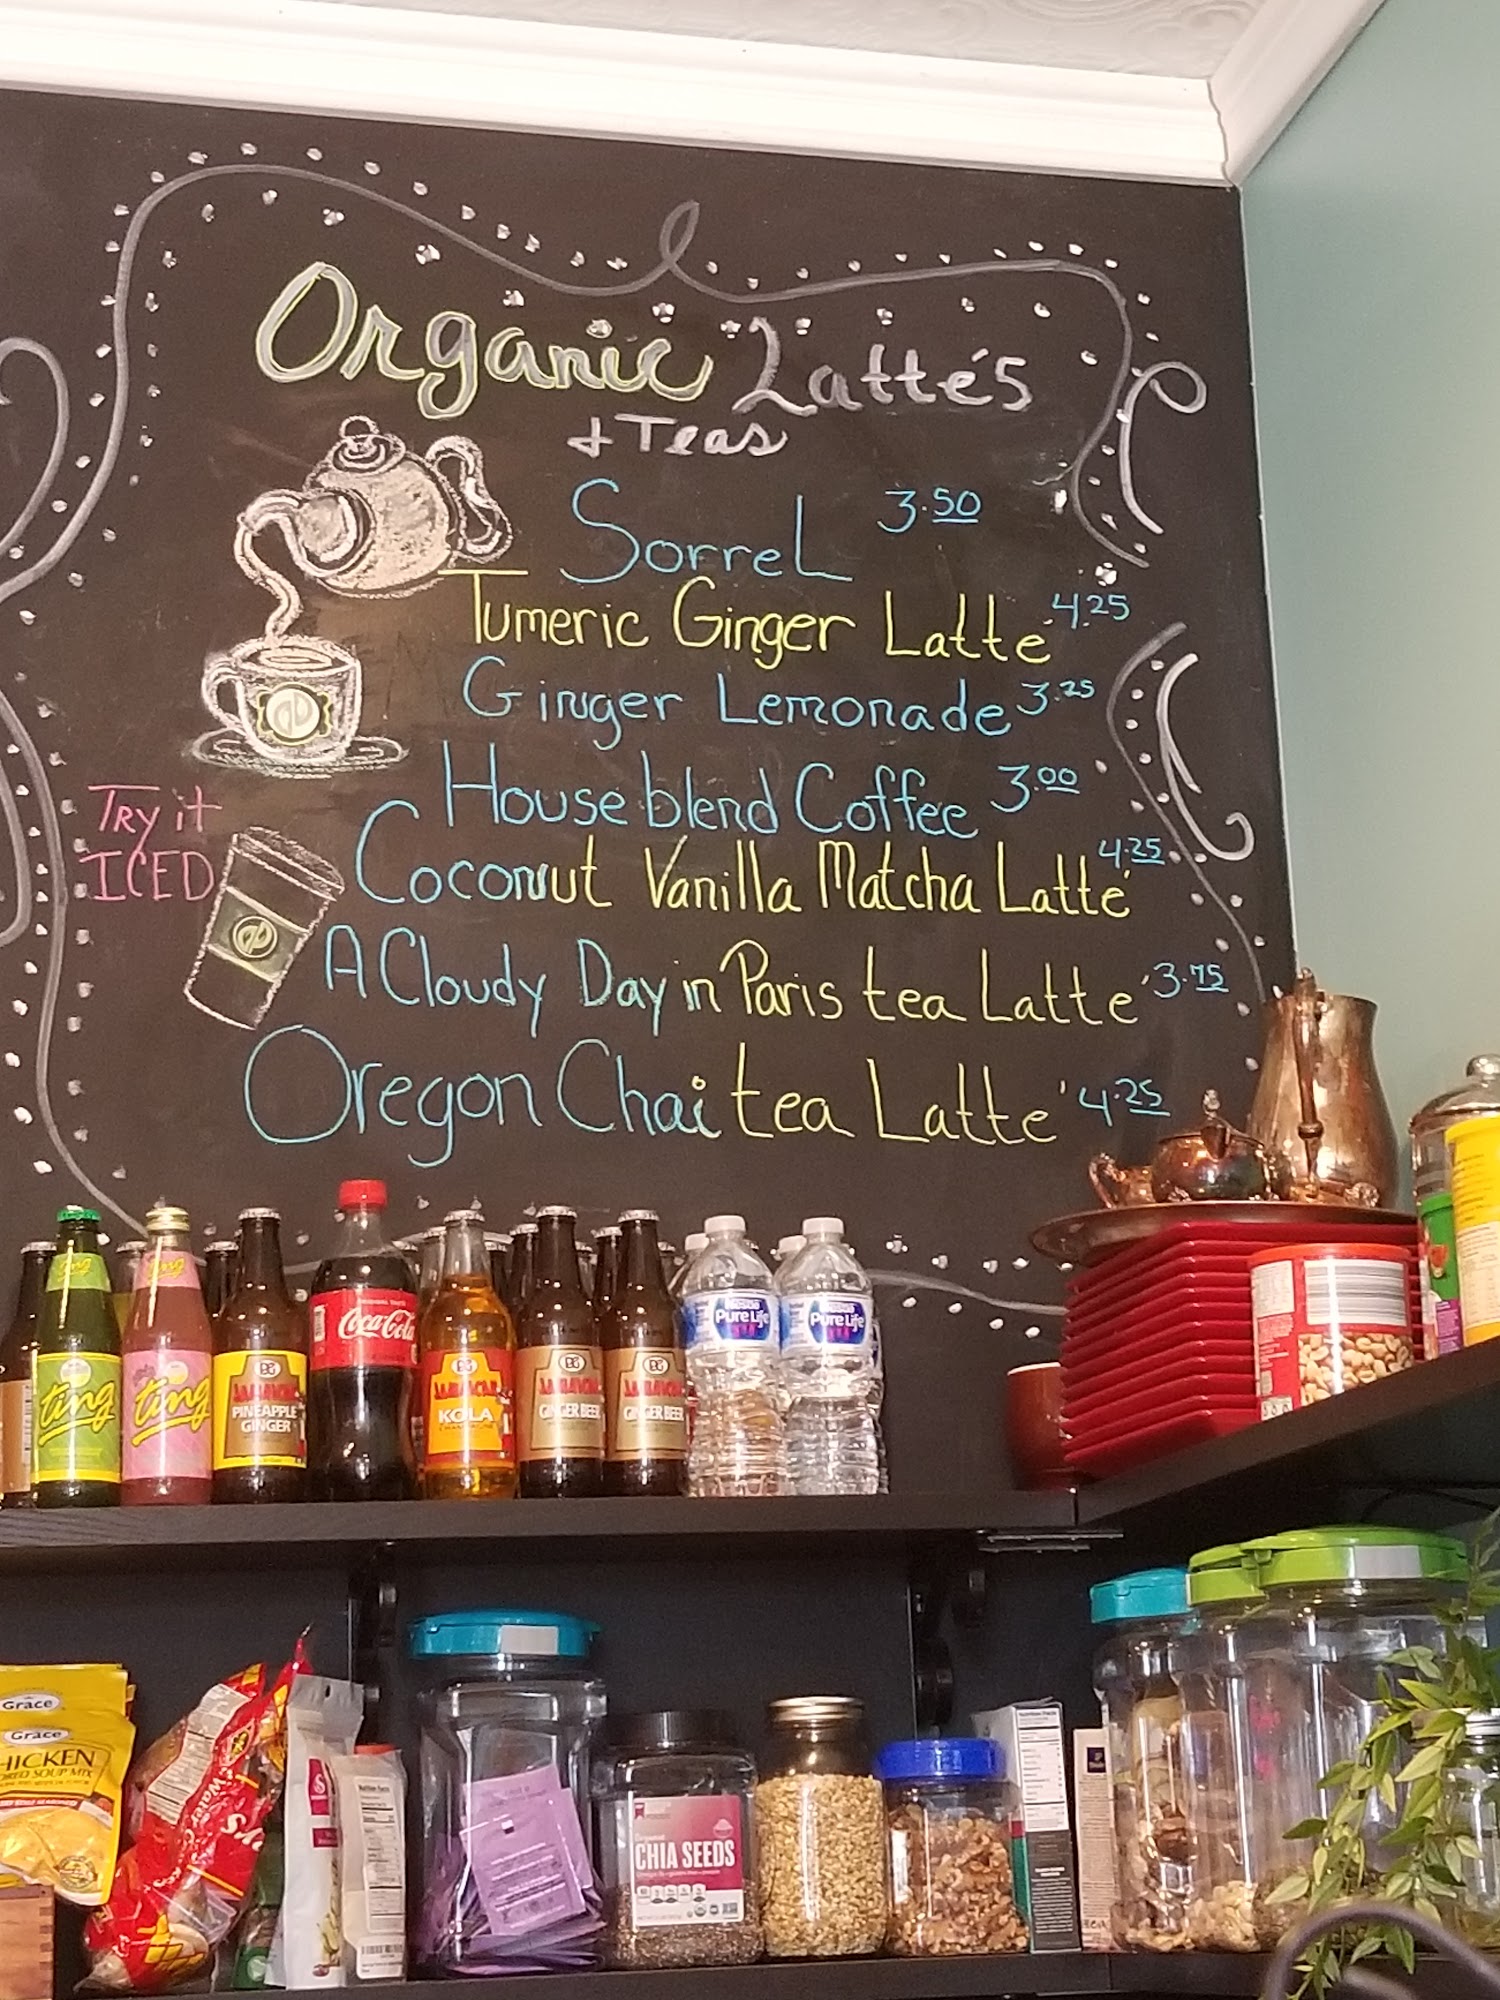 Organic Latté's
+ Teas
Sorrel 3.50
Tumeric Ginger Latte' 4.25
Ginger Lemonade 3.25
House blend Coffee 3.00
Coconut Vanilla Matcha Latte' 4.25
A Cloudy Day in Paris tea Latte' 3.75
Oregon Chai tea Latte' 4.25
Try it
ICED
Ting
Ting
Ting
Ting
DG
JAMAICAN
PINEAPPLE
GINGER
Coca-Cola
DG
JAMAICAN
KOLA
CHAMPAGNE
DG
JAMAICAN
GINGER BEER
DG
JAMAICAN
GINGER BEER
Nestlé
Pure Life
Nestlé
Pure Life
Grace
Grace
HICKEN
SOUP MIX
Organic
CHIA SEEDS